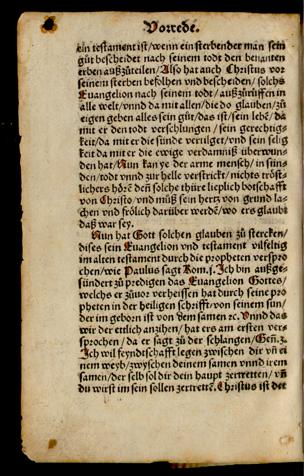 Vorrede.
ein testament ist/wenn ein sterbender man sein
güt bescheidet nach seinem todt den benanten
erben außzůteilen/Also hat auch Christus vor
seinem sterben befolhen vnd bescheiden/solchs
Euangelion nach seinem todt/außzůrüffen in
alle welt/vnnd da mit allen/die do glauben/zů
eigen geben alles sein güt/das ist/sein lebē/da
mit er den todt verschlungen/sein gerechtig-
keit/da mit er die sünde vertilget/vnd sein selig
keit da mit er die ewige verdamniß überwun-
den hat/Nun kan ye der arme mensch/in sün-
den/todt vnnd zur helle verstrickt/nichts tröst-
lichers hörē deñ solche thüre lieplich botschafft
von Christo/vnd müß sein hertz von grund la-
chen vnd frölich darüber werdē/wo ers glaubt
daß war sey.
Nun hat Gott solchen glauben zů stercken/
dises sein Euangelion vnd testament vilfeltig
im alten testament durch die propheten verspro
chen/wie Paulus sagt Rom.j.Ich bin außge-
sündert zů predigen das Euangelion Gottes/
welchs er zůuor verheissen hat durch seine pro
pheten in der heiligen schrifft/von seinem sun/
der im geborn ist von dem samen ꝛc. Vnnd das
wir der etlich anzihen/hat ers am ersten ver-
sprochen/da er sagt zů der schlangen/Geñ.3.
Ich wil feyndtschafft legen zwischen dir vñ ei
nem weyb/zwyschen deinem samen vnnd irem
samen/der selb sol dir dein haupt zertretten/vñ
du wirst im sein sollen zertrettē. Christus ist der